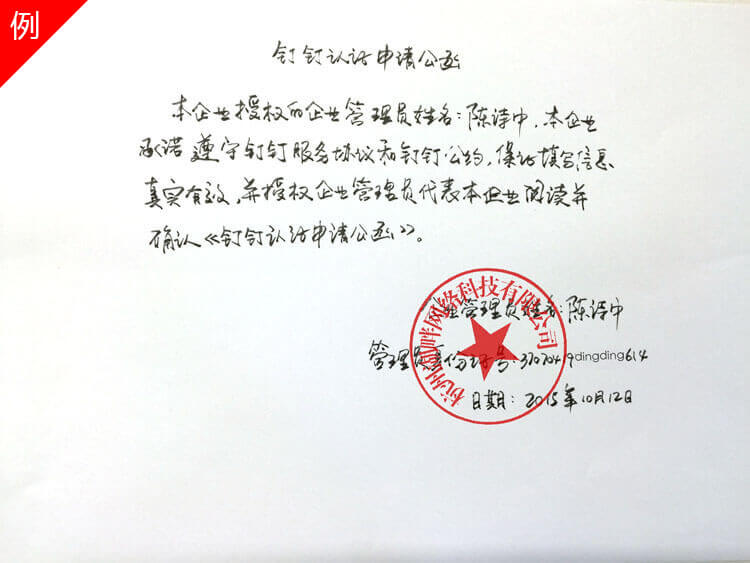 例
钉钉认证申请公函
本企业授权的企业管理员姓名:陈诗中,本企业
承诺遵守钉钉服务协议和钉钉公约,保证填写信息
真实有效,并授权企业管理员代表本企业阅读并
确认《钉钉认证申请公函》。
杭州湖畔网络科技有限公司
企业管理员姓名:陈诗中
管理员身份证号:3707419dingding614
日期:2015年10月12日